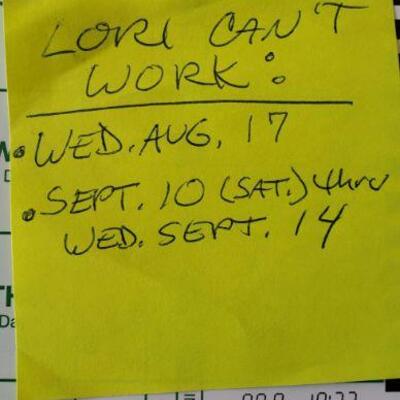 LORI CAN'T
WORK:
• WED. AUG. 17
• SEPT. 10 (SAT.) thru
WED. SEPT. 14